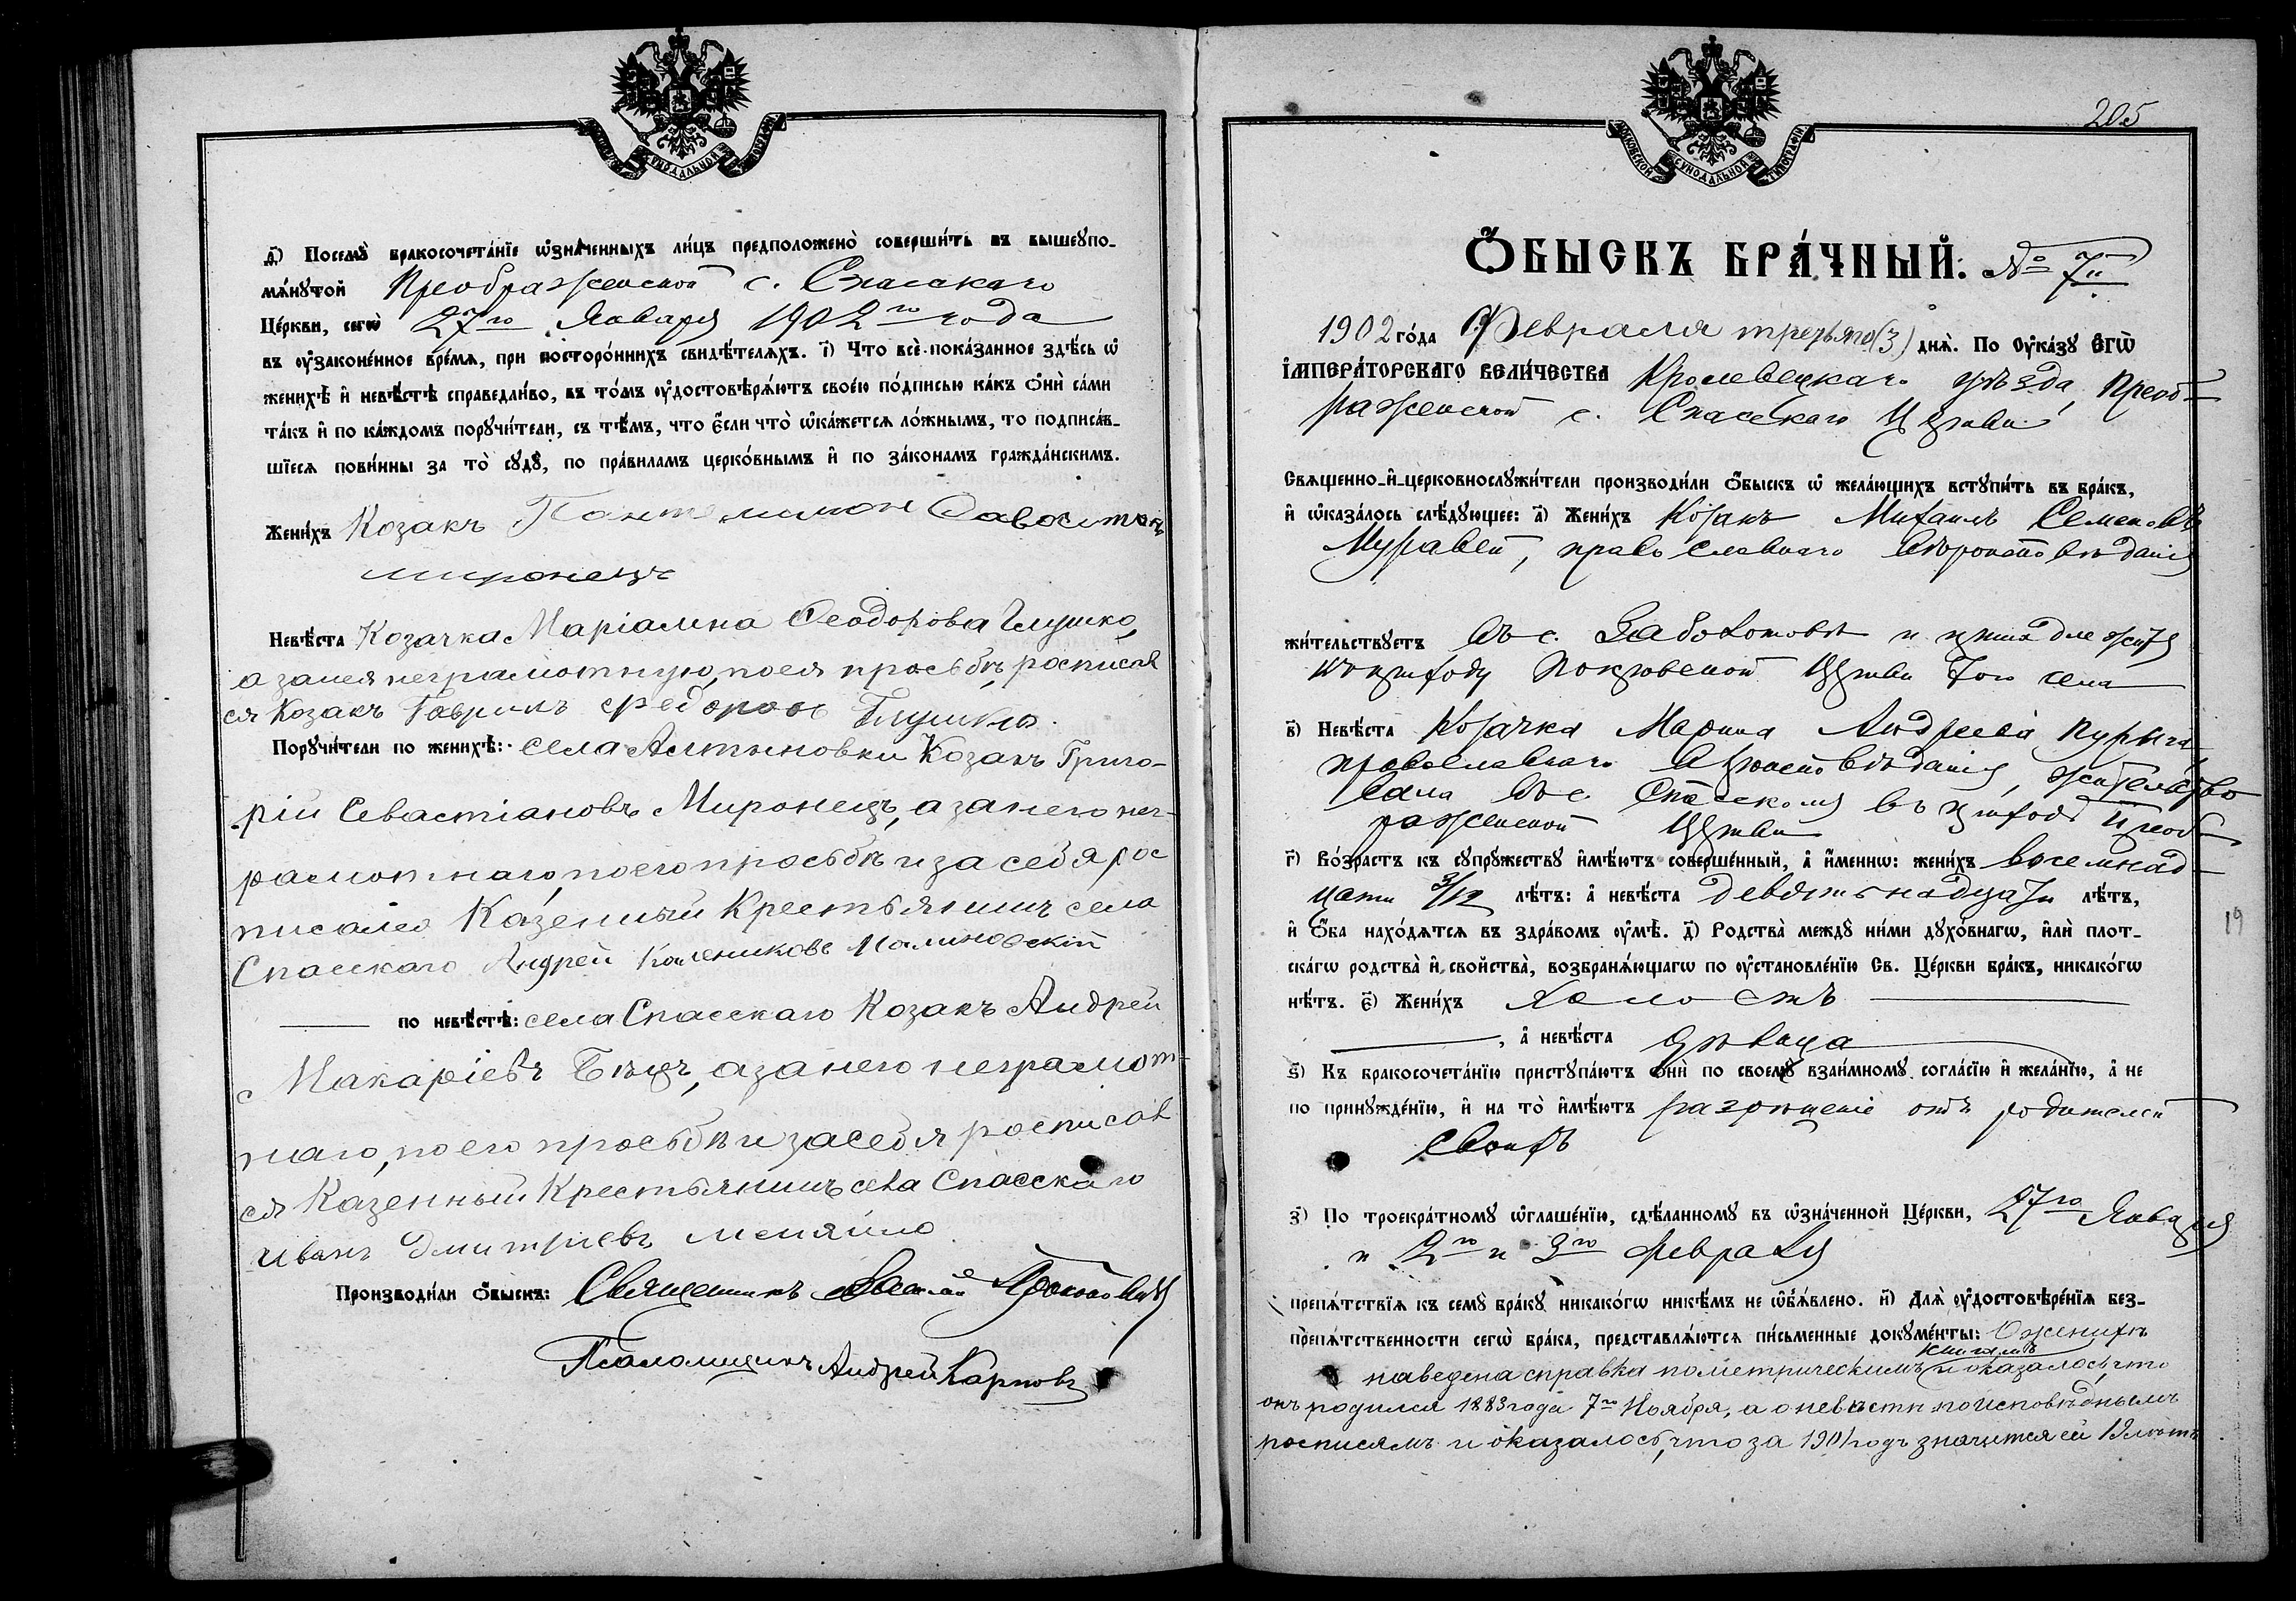 МОСКОВСКОЙ СУНОДАЛЬНОЙ ТИПОГРАФІИ
д҃) Посемꙋ̀ бракосочета́нїе ѡ҆зна́ченныхъ ли́цъ предположено̀ соверши́ть въ вышеꙋпо-
мѧ́нꙋтой Преображенской с. Спасскаго
Це́ркви, сегѡ̀ 27го Января 1902го года
въ ᲂу҆зако́ненное вре́мѧ, при посторо́ннихъ свидѣ́телѧхъ. і҃) Что всѐ пока́занное здѣ́сь ѡ҆
женихѣ̀ и҆ невѣ́стѣ справедли́во, въ то́мъ ᲂу҆достовѣрѧ́ютъ свое́ю по́дписью ка́къ ѻ҆нѝ са́ми
та́къ и҆ по ка́ждомъ порꙋчи́тели, съ тѣ́мъ, что є҆́сли что̀ ѡ҆ка́жетсѧ ло́жнымъ, то подписа́в-
шїесѧ пови́нны за то̀ сꙋдꙋ̀, по пра́виламъ церко́внымъ и҆ по зако́намъ гражда́нскимъ.
Жени́хъ Козакъ Пантелимон Савостьян
миронець
Невѣ́ста Козачка Маріамна Ѳеодорова Глушко,
а за нея неграмотную, по ея просьбѣ, расписал
ся Козакъ Гаврилъ Федоров Глушко.
Порꙋчи́тели по женихѣ̀: села Алтыновки Козакъ Григо-
рій Севастіановъ Миронецъ, а за него нег-
рамотнаго, по его просьбѣ и за себя рос
писался Казенный Крестьянинъ села
Спасскаго Андрей Малиновскій
по невѣ́стѣ: села Спасскаго Козакъ Андрей
Макаріевъ Бѣцъ, а за него неграмот-
наго, по его просьбѣ и за себя росписал
ся Казенный Крестьянинъ села Спасскаго
Иванъ Дмитріевъ Меняйло
Производи́ли ѻ҆́быскъ: Священникъ
Псаломщикъ Андрей Карповъ
205
МОСКОВСКОЙ СУНОДАЛЬНОЙ ТИПОГРАФІИ
Ѻ҆́БЫСКЪ БРА́ЧНЫЙ. № 7й
1902 го́да Февраля третьяго (3) днѧ̀. По Оу҆ка́зꙋ Є҆ГѠ̀
І҆МПЕРА́ТОРСКАГО ВЕЛИ́ЧЕСТВА Кролевецкаго уѣзда, Преоб-
раженской с. Спасскаго Церкви
Свѧще́нно-и҆-церковнослꙋжи́тели производи́ли ѻ҆́быскъ ѡ҆ жела́ющихъ встꙋпи́ть въ бра́къ,
и҆ ѡ҆каза́лось слѣ́дꙋющее: а҃) Жени́хъ Козакъ Михаилъ Семеновъ
Муравей, православнаго вѣроисповѣданія
жи́тельствꙋетъ въ с. Заболотовѣ и принадлежитъ
къ приходу Покровской Церкви того села
в҃) Невѣ́ста Козачка Марина Андреева Пурыга,
православнаго вѣроисповѣданія, жительство
вала въ с. Спасскомъ въ приходѣ Преоб-
раженской Церкви
г҃) Во́зрастъ къ сꙋпрꙋ́жествꙋ и҆мѣ́ютъ соверше́нный, а҆ и҆́меннѡ: жени́хъ восемнад-
цати 3/12 лѣ́тъ: а҆ невѣ́ста девятьнадцати лѣ́тъ,
и҆ ѻ҆́ба нахо́дѧтсѧ въ здра́вомъ ᲂу҆мѣ̀. д҃) Родства̀ междꙋ̀ ни́ми дꙋхо́внагѡ, и҆лѝ плот-
ска́гѡ родства̀ и҆ сво́йства̀, возбранѧ́ющагѡ по ᲂу҆становле́нїю Св. Це́ркви бра́къ, никако́гѡ
нѣ́тъ. є҃) Жени́хъ Холостъ
, а҆ невѣ́ста дѣвица
ѕ҃) Къ бракосочета́нїю пристꙋпа́ютъ ѻ҆нѝ по своемꙋ̀ взаи́мномꙋ согла́сїю и҆ жела́нїю, а҆ не
по принꙋжде́нїю, и҆ на то̀ и҆мѣ́ютъ разрѣшеніе отъ родителей
своихъ
з҃) По троекра́тномꙋ ѡ҆глаше́нїю, сдѣ́ланномꙋ въ ѡ҆зна́ченной Це́ркви, 27го Января
и 2го и 3го Февраля
препѧ́тствїѧ къ семꙋ̀ бра́кꙋ никако́гѡ никѣ́мъ не ѡ҆б̾ѧ́влено. и҃) Длѧ̀ ᲂу҆достовѣре́нїѧ без-
препѧ́тственности сегѡ̀ бра́ка, представлѧ́ютсѧ пи́сьменные докꙋме́нты: О женихѣ
книгамъ
наведена справка по метрическимъ и оказалось, что
онъ родился 1883 года 7го Ноября, а о невѣстѣ по исповѣднымъ
росписямъ и оказалось, что за 1901 годъ значится ей 19 лѣтъ
19